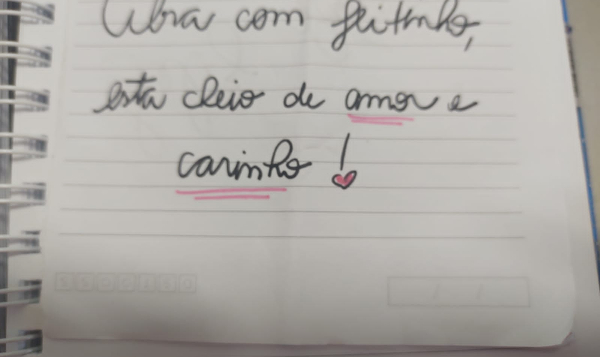 Abra com jeitinho,
esta cheio de amor e
carinho!